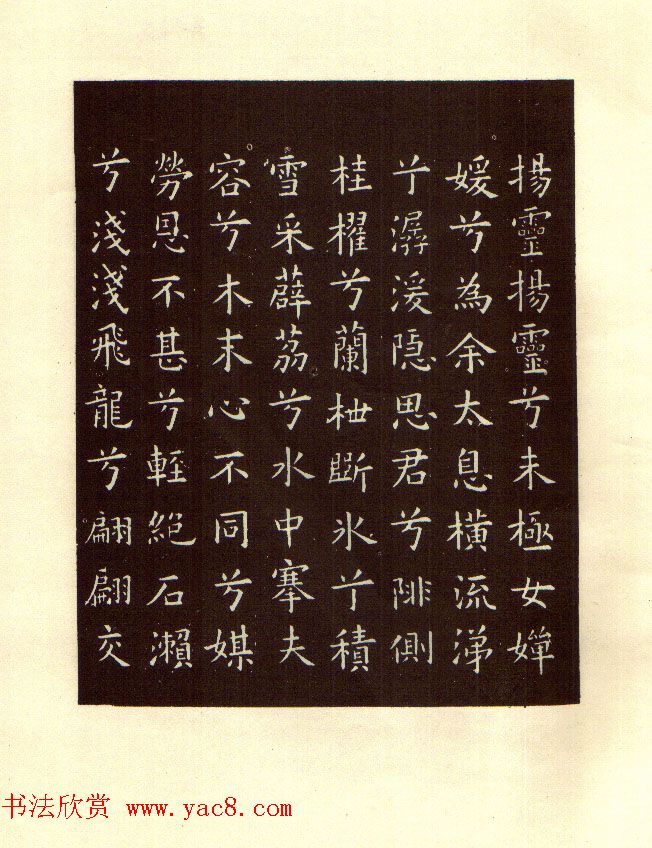 揚靈揚靈兮未極女嬋
媛兮為余太息橫流涕
兮潺湲隐思君兮陫側
桂櫂兮蘭枻斷氷兮積
雪采薜荔兮水中搴夫
容兮木末心不同兮媒
勞恩不甚兮輕絕石瀨
兮淺淺飛龍兮翩翩交
书法欣赏 www.yac8.com